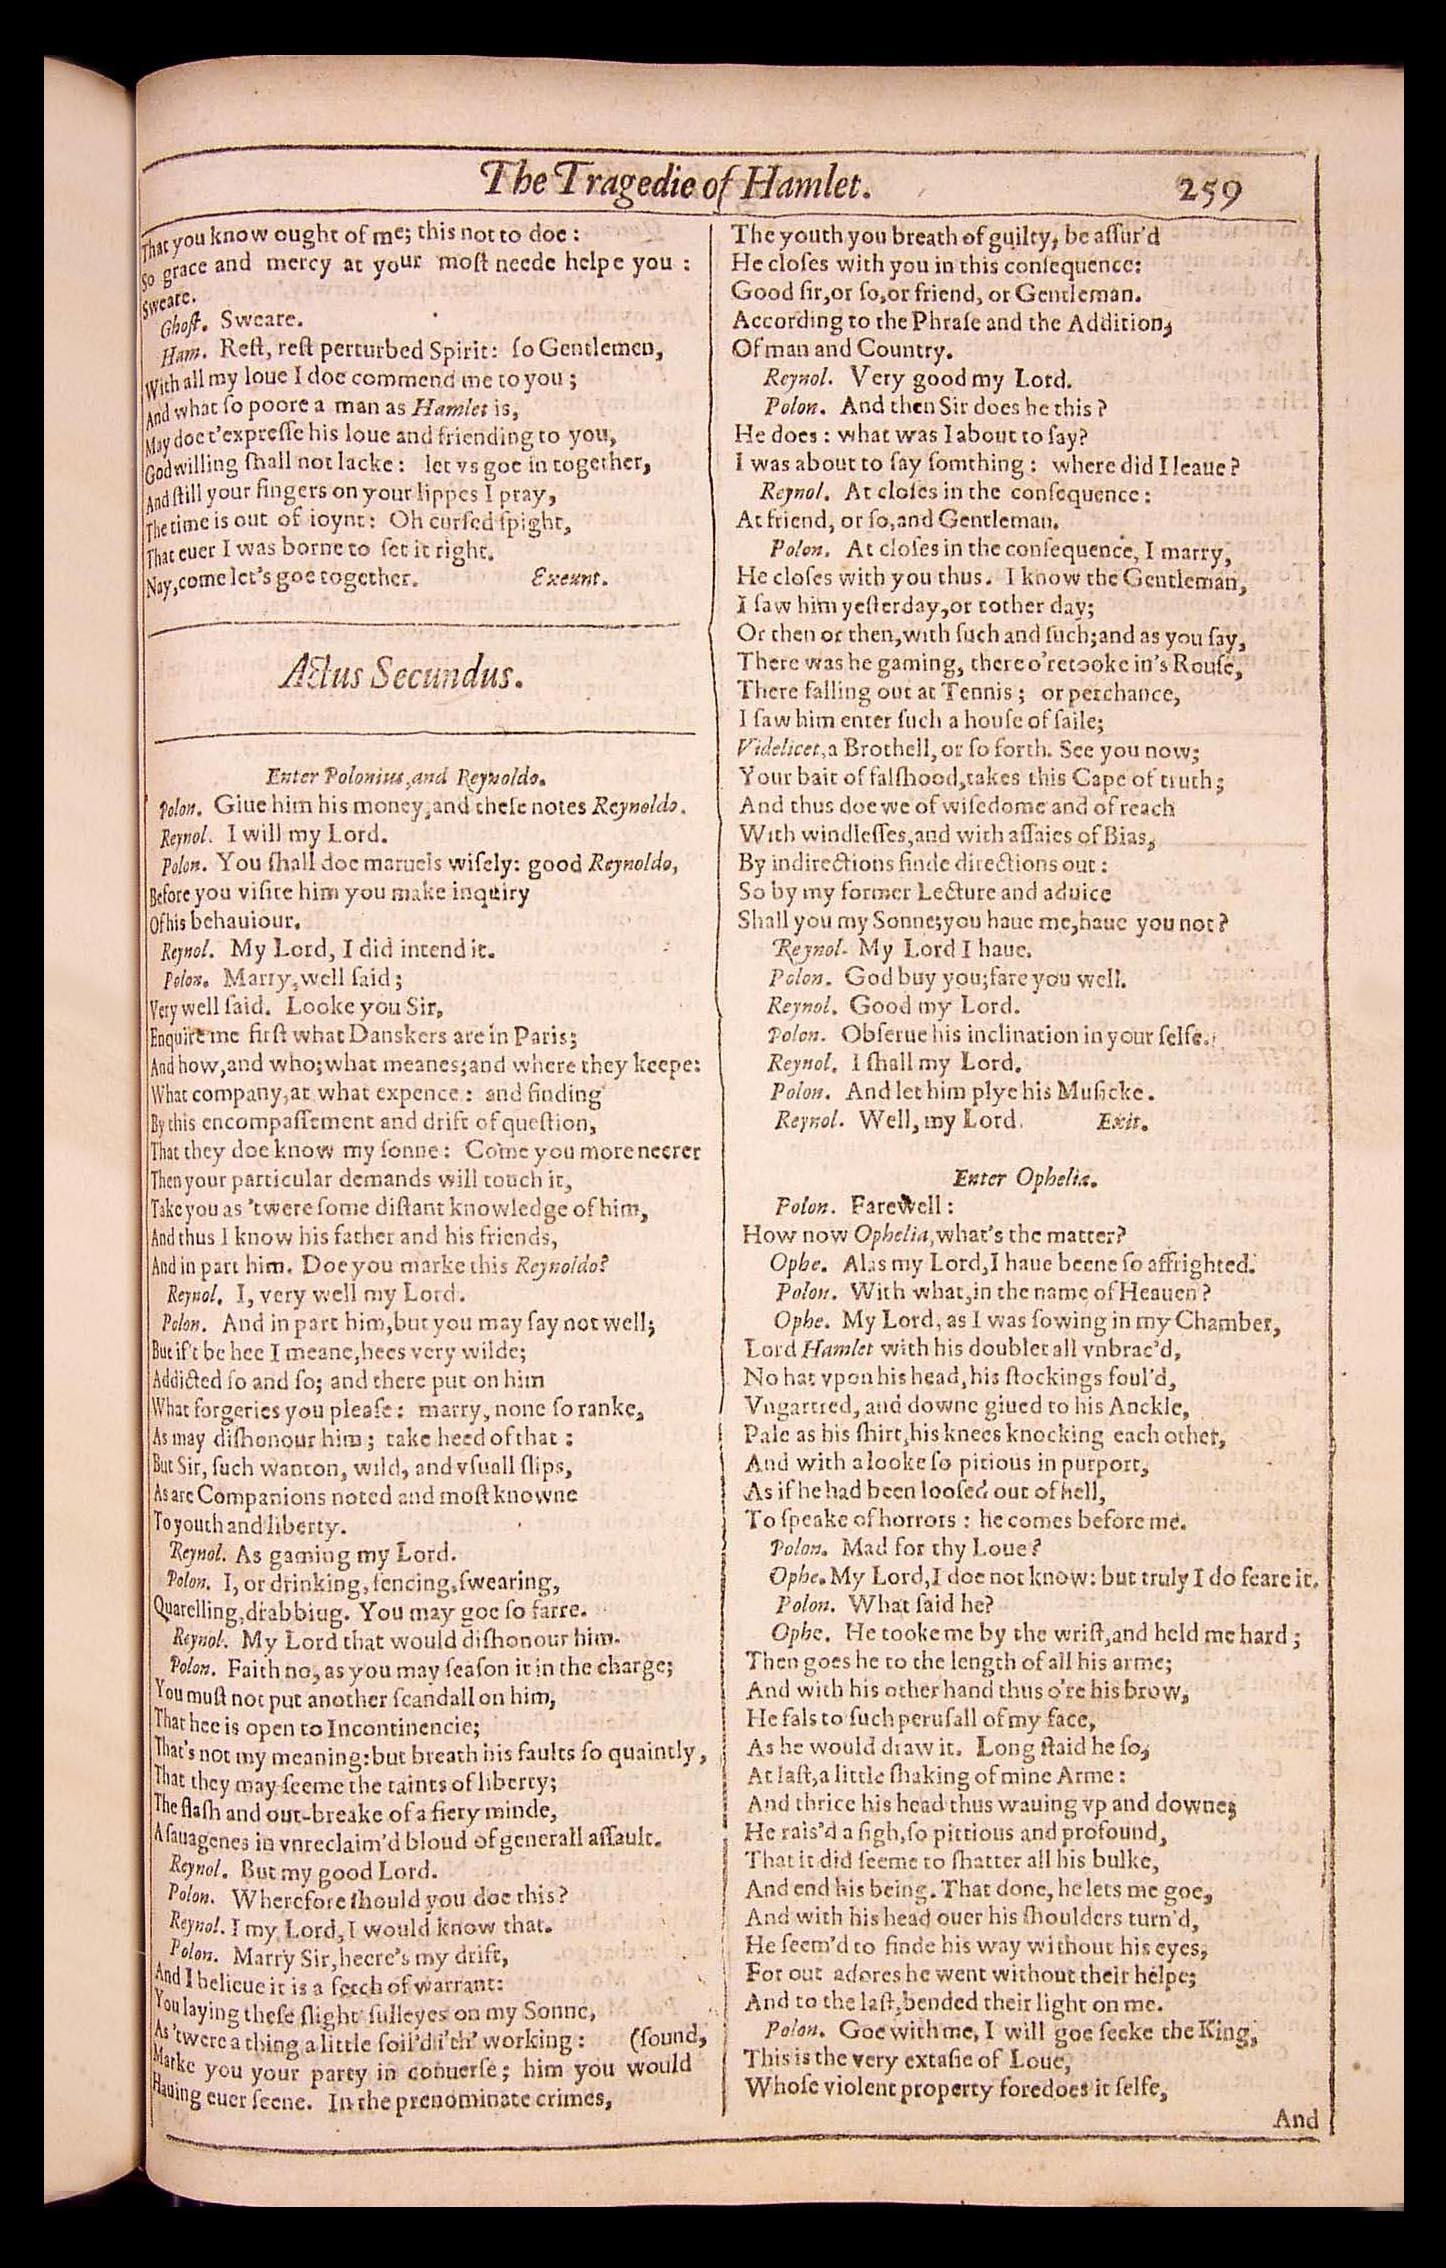 The Tragedie of Hamlet. 259
That you know ought of me; this not to doe:
So grace and mercy at your most neede helpe you:
Sweare.
Ghoſt. Sweare.
Ham. Reſt, reſt perturbed Spirit: ſo Gentlemen,
With all my loue I doe commend me to you;
And what ſo poore a man as Hamlet is,
May doe t'expreſſe his loue and friending to you,
God willing ſhall not lacke: let vs goe in together,
And ſtill your fingers on your lippes I pray,
The time is out of ioynt: Oh curſed ſpight,
That euer I was borne to ſet it right.
Nay, come let's goe together. Exeunt.
Actus Secundus.
Enter Polonius, and Reynoldo.
Polon. Giue him his money, and theſe notes Reynoldo.
Reynol. I will my Lord.
Polon. You ſhall doe maruels wiſely: good Reynoldo,
Before you viſite him you make inquiry
Of his behauiour.
Reynol. My Lord, I did intend it.
Polon. Marry, well ſaid;
Very well ſaid. Looke you Sir,
Enquire me firſt what Danskers are in Paris;
And how, and who; what meanes; and where they keepe:
What company, at what expence: and finding
By this encompaſſement and drift of queſtion,
That they doe know my ſonne: Come you more neerer
Then your particular demands will touch it,
Take you as 'twere ſome diſtant knowledge of him,
And thus I know his father and his friends,
And in part him. Doe you marke this Reynoldo?
Reynol. I, very well my Lord.
Polon. And in part him, but you may ſay not well;
But if't be hee I meane, hees very wilde;
Addicted ſo and ſo; and there put on him
What forgeries you pleaſe: marry, none ſo ranke,
As may diſhonour him; take heed of that:
But Sir, ſuch wanton, wild, and vſuall ſlips,
As are Companions noted and moſt knowne
To youth and liberty.
Reynol. As gaming my Lord.
Polon. I, or drinking, fencing, ſwearing,
Quarelling, drabbiug. You may goe ſo farre.
Reynol. My Lord that would diſhonour him.
Polon. Faith no, as you may ſeaſon it in the charge;
You muſt not put another ſcandall on him,
That hee is open to Incontinencie;
That's not my meaning: but breath his faults ſo quaintly,
That they may ſeeme the taints of liberty;
The flaſh and out-breake of a fiery minde,
A ſauagenes in vnreclaim'd bloud of generall aſſault.
Reynol. But my good Lord.
Polon. Wherefore ſhould you doe this?
Reynol. I my Lord, I would know that.
Polon. Marry Sir, heere's my drift,
And I belieue it is a fetch of warrant:
You laying theſe ſlight ſulleyes on my Sonne,
As 'twere a thing a little ſoil'd i'th' working: (ſound,
Marke you your party in conuerſe; him you would
Hauing euer ſeene. In the prenominate crimes,
The youth you breath of guilty, be aſſur'd
He cloſes with you in this conſequence:
Good ſir, or ſo, or friend, or Gentleman.
According to the Phraſe and the Addition,
Of man and Country.
Reynol. Very good my Lord.
Polon. And then Sir does he this?
He does: what was I about to ſay?
I was about to ſay ſomthing: where did I leaue?
Reynol. At cloſes in the conſequence:
At friend, or ſo, and Gentleman.
Polon. At cloſes in the conſequence, I marry,
He cloſes with you thus. I know the Gentleman,
I ſaw him yeſterday, or tother day;
Or then or then, with ſuch and ſuch; and as you ſay,
There was he gaming, there o'retooke in's Rouſe,
There falling out at Tennis; or perchance,
I ſaw him enter ſuch a houſe of ſaile;
Videlicet, a Brothell, or ſo forth. See you now;
Your bait of falſhood, takes this Cape of truth;
And thus doe we of wiſedome and of reach
With windleſſes, and with aſſaies of Bias,
By indirections finde directions out:
So by my former Lecture and aduice
Shall you my Sonne; you haue me, haue you not?
Reynol. My Lord I haue.
Polon. God buy you; fare you well.
Reynol. Good my Lord.
Polon. Obſerue his inclination in your ſelfe.
Reynol. I ſhall my Lord.
Polon. And let him plye his Muſicke.
Reynol. Well, my Lord. Exit.
Enter Ophelia.
Polon. Farewell:
How now Ophelia, what's the matter?
Ophe. Alas my Lord, I haue beene ſo affrighted.
Polon. With what, in the name of Heauen?
Ophe. My Lord, as I was ſowing in my Chamber,
Lord Hamlet with his doublet all vnbrac'd,
No hat vpon his head, his ſtockings foul'd,
Vngartred, and downe giued to his Anckle,
Pale as his ſhirt, his knees knocking each other,
And with a looke ſo pitious in purport,
As if he had been looſed out of hell,
To ſpeake of horrors: he comes before me.
Polon. Mad for thy Loue?
Ophe. My Lord, I doe not know: but truly I do feare it.
Polon. What ſaid he?
Ophe. He tooke me by the wriſt, and held me hard;
Then goes he to the length of all his arme;
And with his other hand thus o're his brow,
He fals to ſuch peruſall of my face,
As he would draw it. Long ſtaid he ſo,
At laſt, a little ſhaking of mine Arme:
And thrice his head thus wauing vp and downe;
He rais'd a ſigh, ſo pittious and profound,
That it did ſeeme to ſhatter all his bulke,
And end his being. That done, he lets me goe,
And with his head ouer his ſhoulders turn'd,
He ſeem'd to finde his way without his eyes,
For out adores he went without their helpe;
And to the laſt, bended their light on me.
Polon. Goe with me, I will goe ſeeke the King,
This is the very extaſie of Loue,
Whoſe violent property foredoes it ſelfe,
And